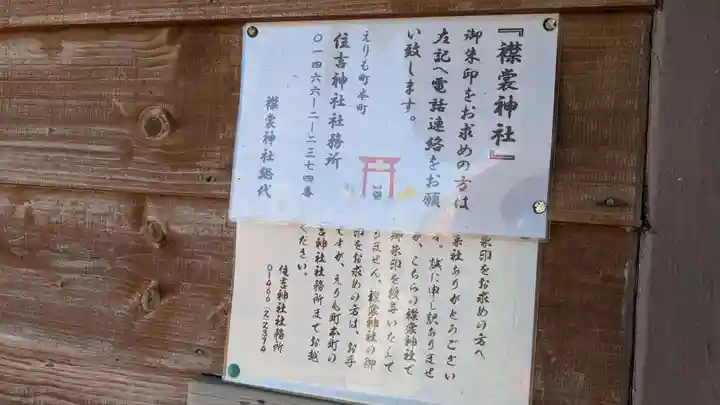 『襟裳神社』
御朱印をお求めの方は
左記へ電話連絡をお願
い致します。
えりも町本町
住吉神社社務所
〇一四六六ー二ー二三七四番
襟裳神社総代
朱印をお求めの方へ
来社ありがとうござい
す。誠に申し訳ありませ
が、こちらの襟裳神社で
御朱印を授与いたして
りません。襟裳神社の御
印をお求めの方は、お手
ですが、えりも町本町の
吉神社社務所までお越
ください。
住吉神社社務所
01466 2 2374